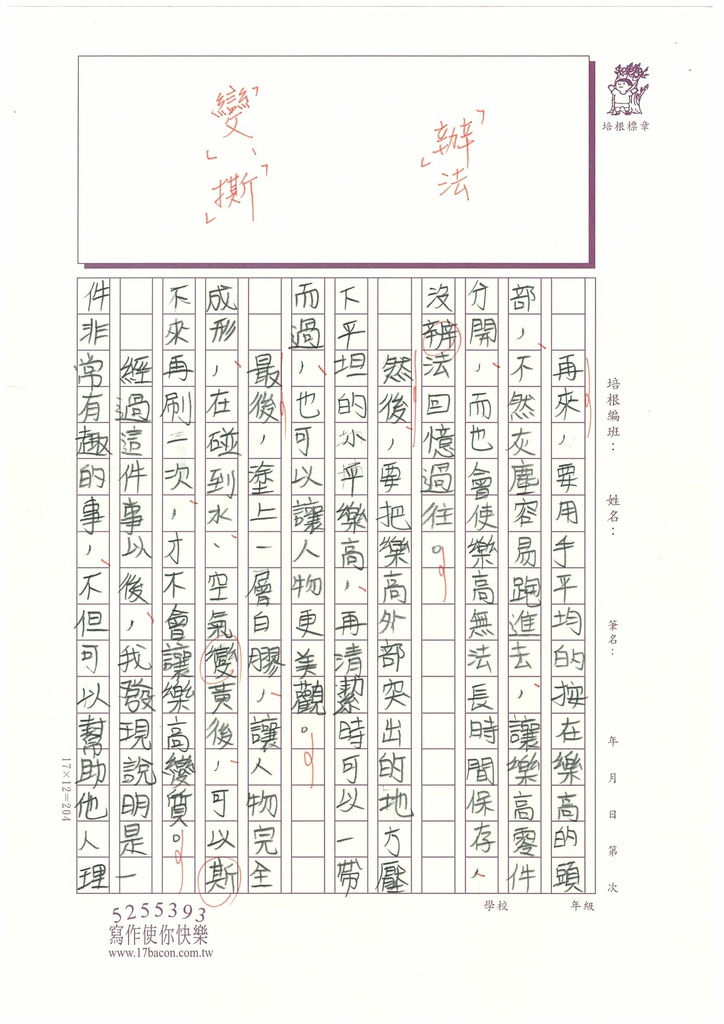 辦法
變、撕
培根標章
培根編班： 姓名： 筆名： 年 月 日 第 次
再來，要用手平均的按在樂高的頭
部，不然灰塵容易跑進去，讓樂高零件
分開，而也會使樂高無法長時間保存，
沒辦法回憶過往。
然後，要把樂高外部突出的地方壓
下平坦的小平樂高，再清潔時可以一帶
而過，也可以讓人物更美觀。
最後，塗上一層白膠，讓人物完全
成形，在碰到水、空氣變黃後，可以斯
下來再刷一次，才不會讓樂高變質。
經過這件事以後，我發現說明是一
件非常有趣的事，不但可以幫助他人理
17×12=204
學校 年級
5255393
寫作使你快樂
www.17bacon.com.tw